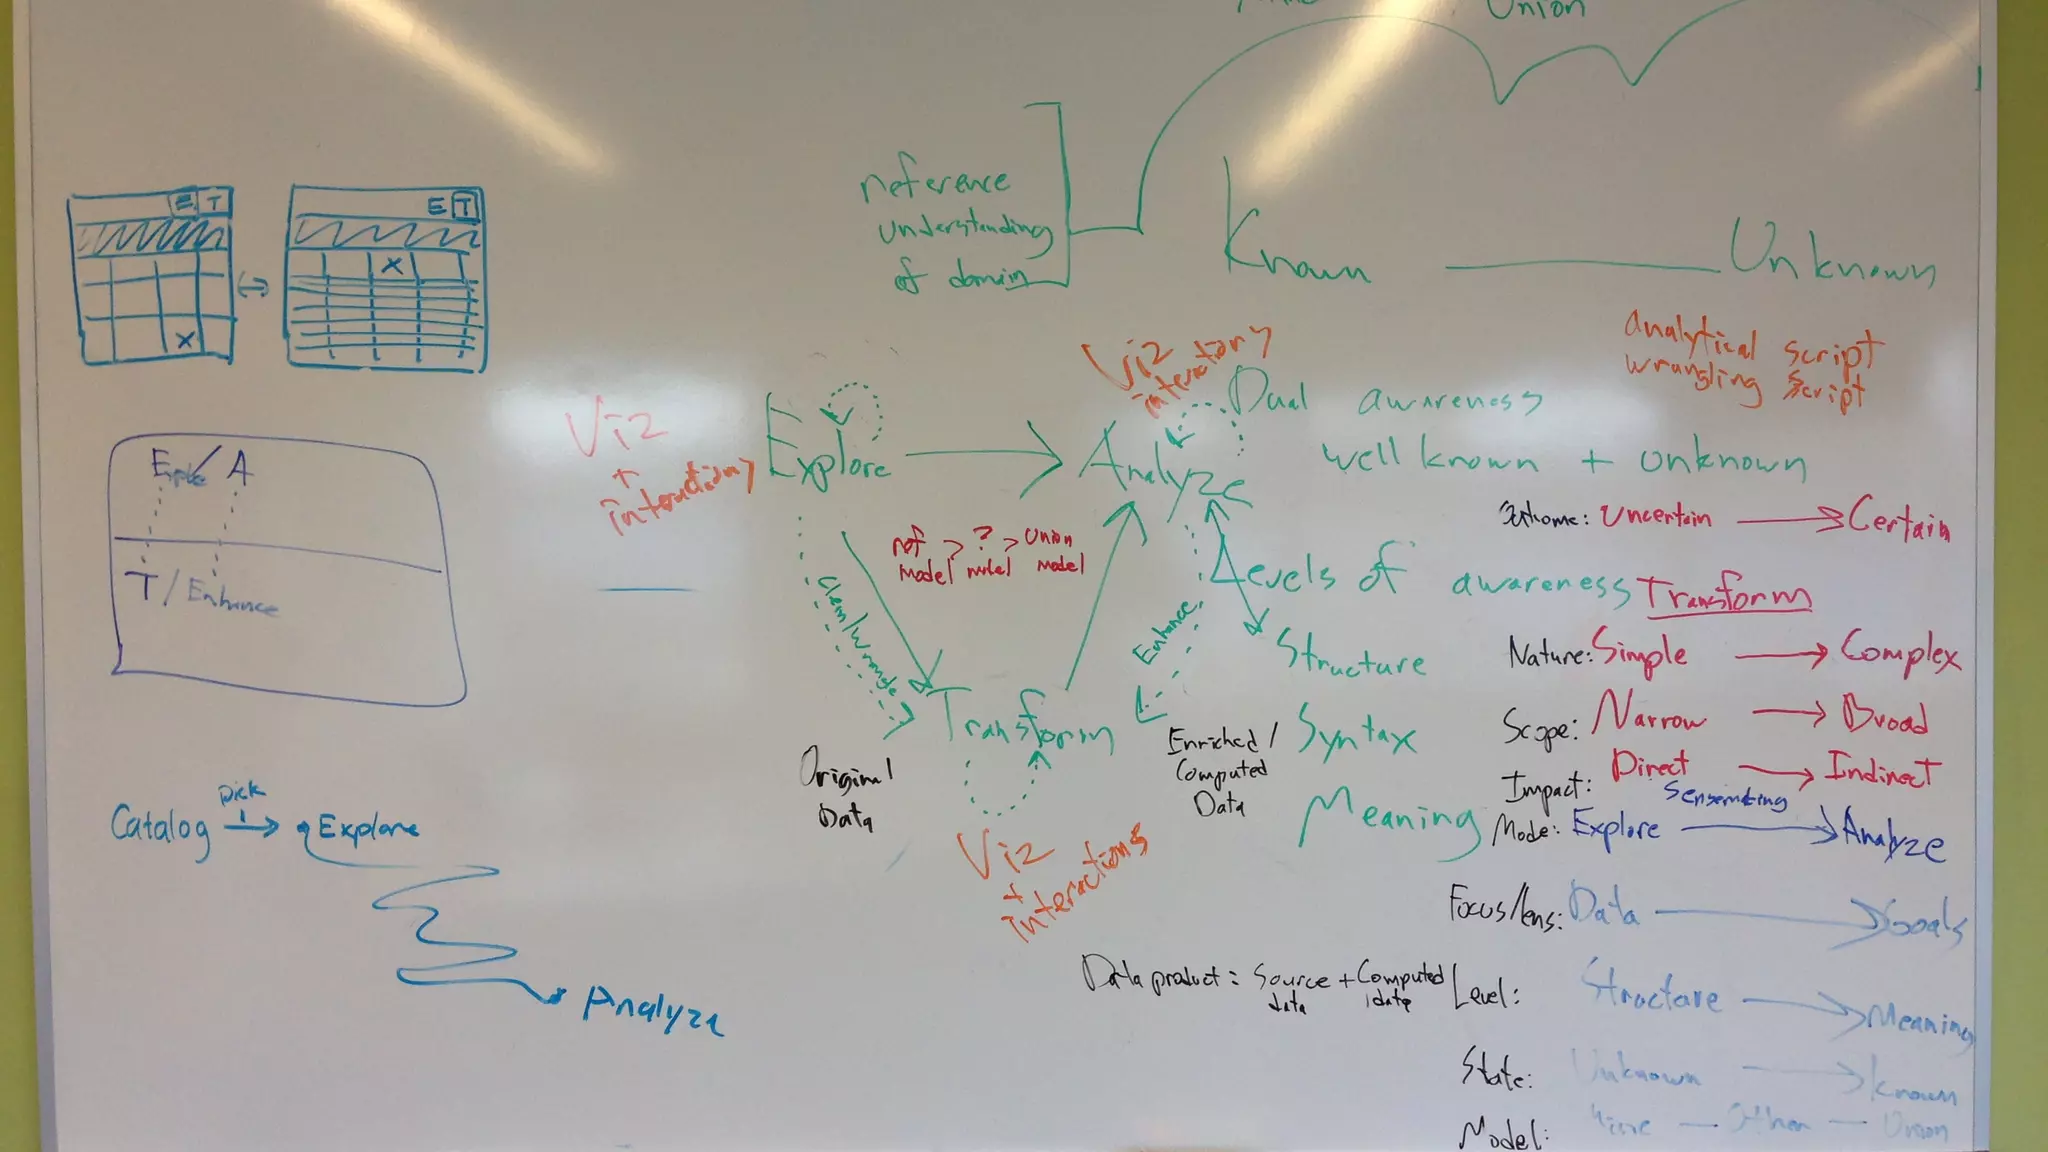 Union
reference
understanding
of domain
Known
Unknown
E T
E T
X
X
analytical script
wrangling script
Viz
+
interactions
Explore
Viz
Analyze
Dual awareness
well known + unknown
Outcome: Uncertain Certain
ref > ? > Union
model model model
Clean/Wrangle
Enhance
Levels of awareness
Structure
Syntax
Meaning
Transform
Nature: Simple Complex
Scope: Narrow Broad
Impact: Direct Indirect
Sensemaking
Mode: Explore Analyze
Focus/lens: Data Goals
Level: Structure Meaning
State: Unknown Known
Model: Other Union
Transform
Original
Data
Enriched/
Computed
Data
Viz
+
interactions
Data product = Source + Computed
data data
A
T / Enhance
Catalog pick Explore
Analyze